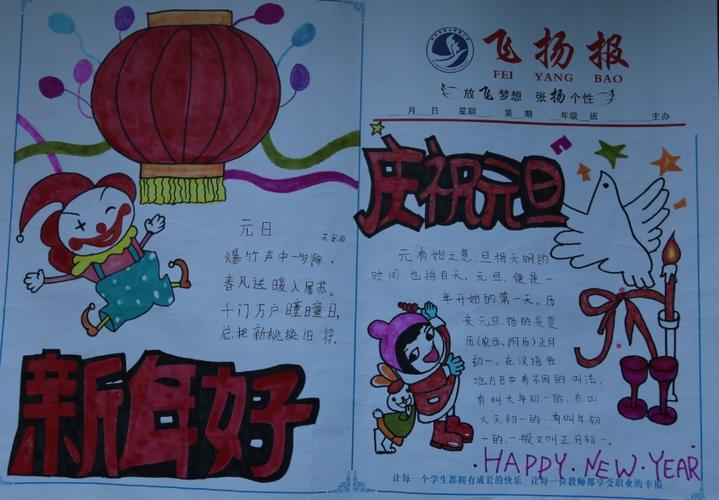 元日 王安石
爆竹声中一岁除,
春风送暖入屠苏。
千门万户曈曈日,
总把新桃换旧符.
新年好
飞扬报
FEI YANG BAO
放飞梦想 张扬个性
月 日 星期 第 期 年级 班 主办
庆祝元旦
元有始之意,旦指天明的
时间,也指白天。元旦,便是一
年开始的第一天。历
来元旦指的是夏
历(农历、阴历)正月
初一。在汉语各
地方言中有不同的叫法,
有叫大年初一的,有叫
大天初一的,有叫年初
一的,一般又叫正月初一。
·HAPPY·NEW·YEAR
让每一个学生都拥有成长的快乐 让每一位教师都享受职业的幸福